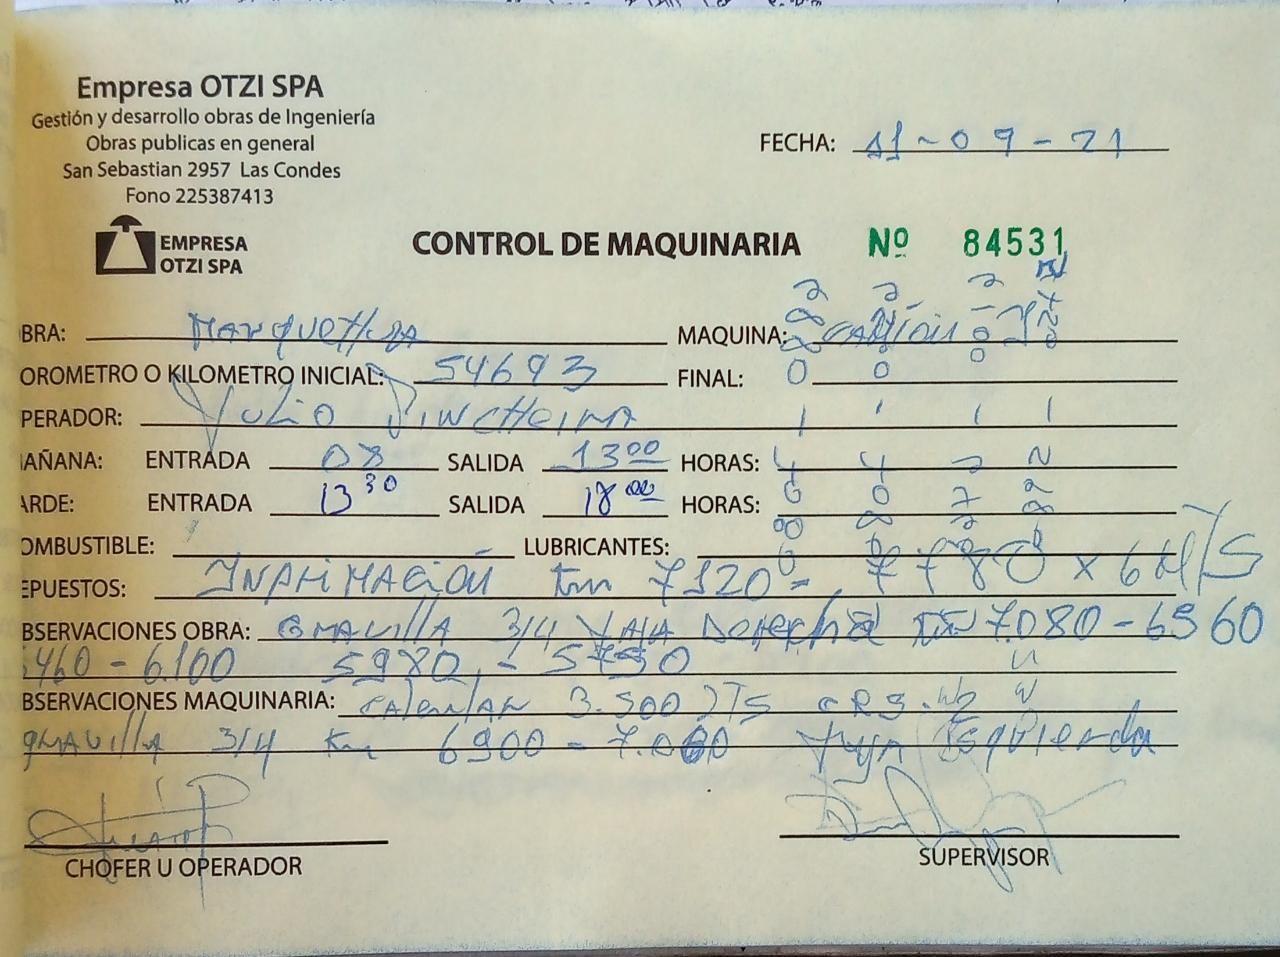 Empresa OTZI SPA
Gestión y desarrollo obras de Ingeniería
Obras publicas en general
San Sebastian 2957 Las Condes
Fono 225387413
FECHA: 11-09-21
EMPRESA
OTZI SPA
CONTROL DE MAQUINARIA Nº 84531
BRA: MARQUETHUA MAQUINA: CAMION
OROMETRO O KILOMETRO INICIAL: 54693 FINAL:
PERADOR: JULIO PINCHEIRA
AÑANA: ENTRADA 08 SALIDA 13 00 HORAS:
ARDE: ENTRADA 13 30 SALIDA 18 00 HORAS:
OMBUSTIBLE: LUBRICANTES:
EPUESTOS: INPRIMACIÓN Km 7120 - 7780 x 6 MTS
BSERVACIONES OBRA: GRAVILLA 3/4 FAJA Derecha Km 7.080 - 6960
6.100 5980 - 5750
BSERVACIONES MAQUINARIA: CALENTAR 3.500 LTS CRS.
GRAVILLA 3/4 Km 6900 - 7.080 FAJA Esquierda
CHOFER U OPERADOR
SUPERVISOR